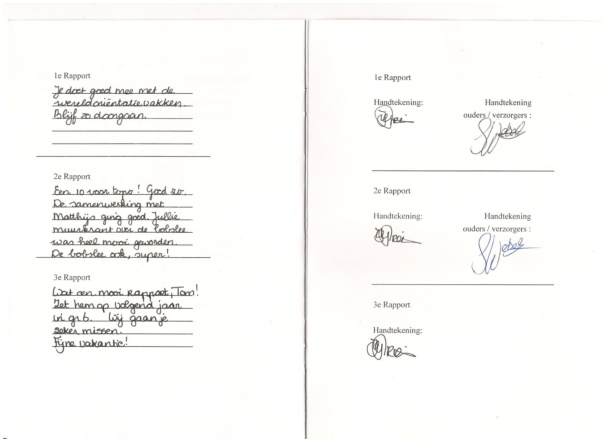 1e Rapport
Je doet goed mee met de
wereldoriëntatie vakken.
Blijf zo doorgaan.
2e Rapport
Een 10 voor topo! Goed zo.
De samenwerking met
Matthijs ging goed. Jullie
muurkrant over de bobslee
was heel mooi geworden.
De bobslee ook, super!
3e Rapport
Wat een mooi Rapport, Tom!
Zet hem op volgend jaar
in gr 6. Wij gaan je
zeker missen.
Fijne vakantie!
1e Rapport
Handtekening:
Handtekening
ouders / verzorgers :
2e Rapport
Handtekening:
Handtekening
ouders / verzorgers :
3e Rapport
Handtekening: